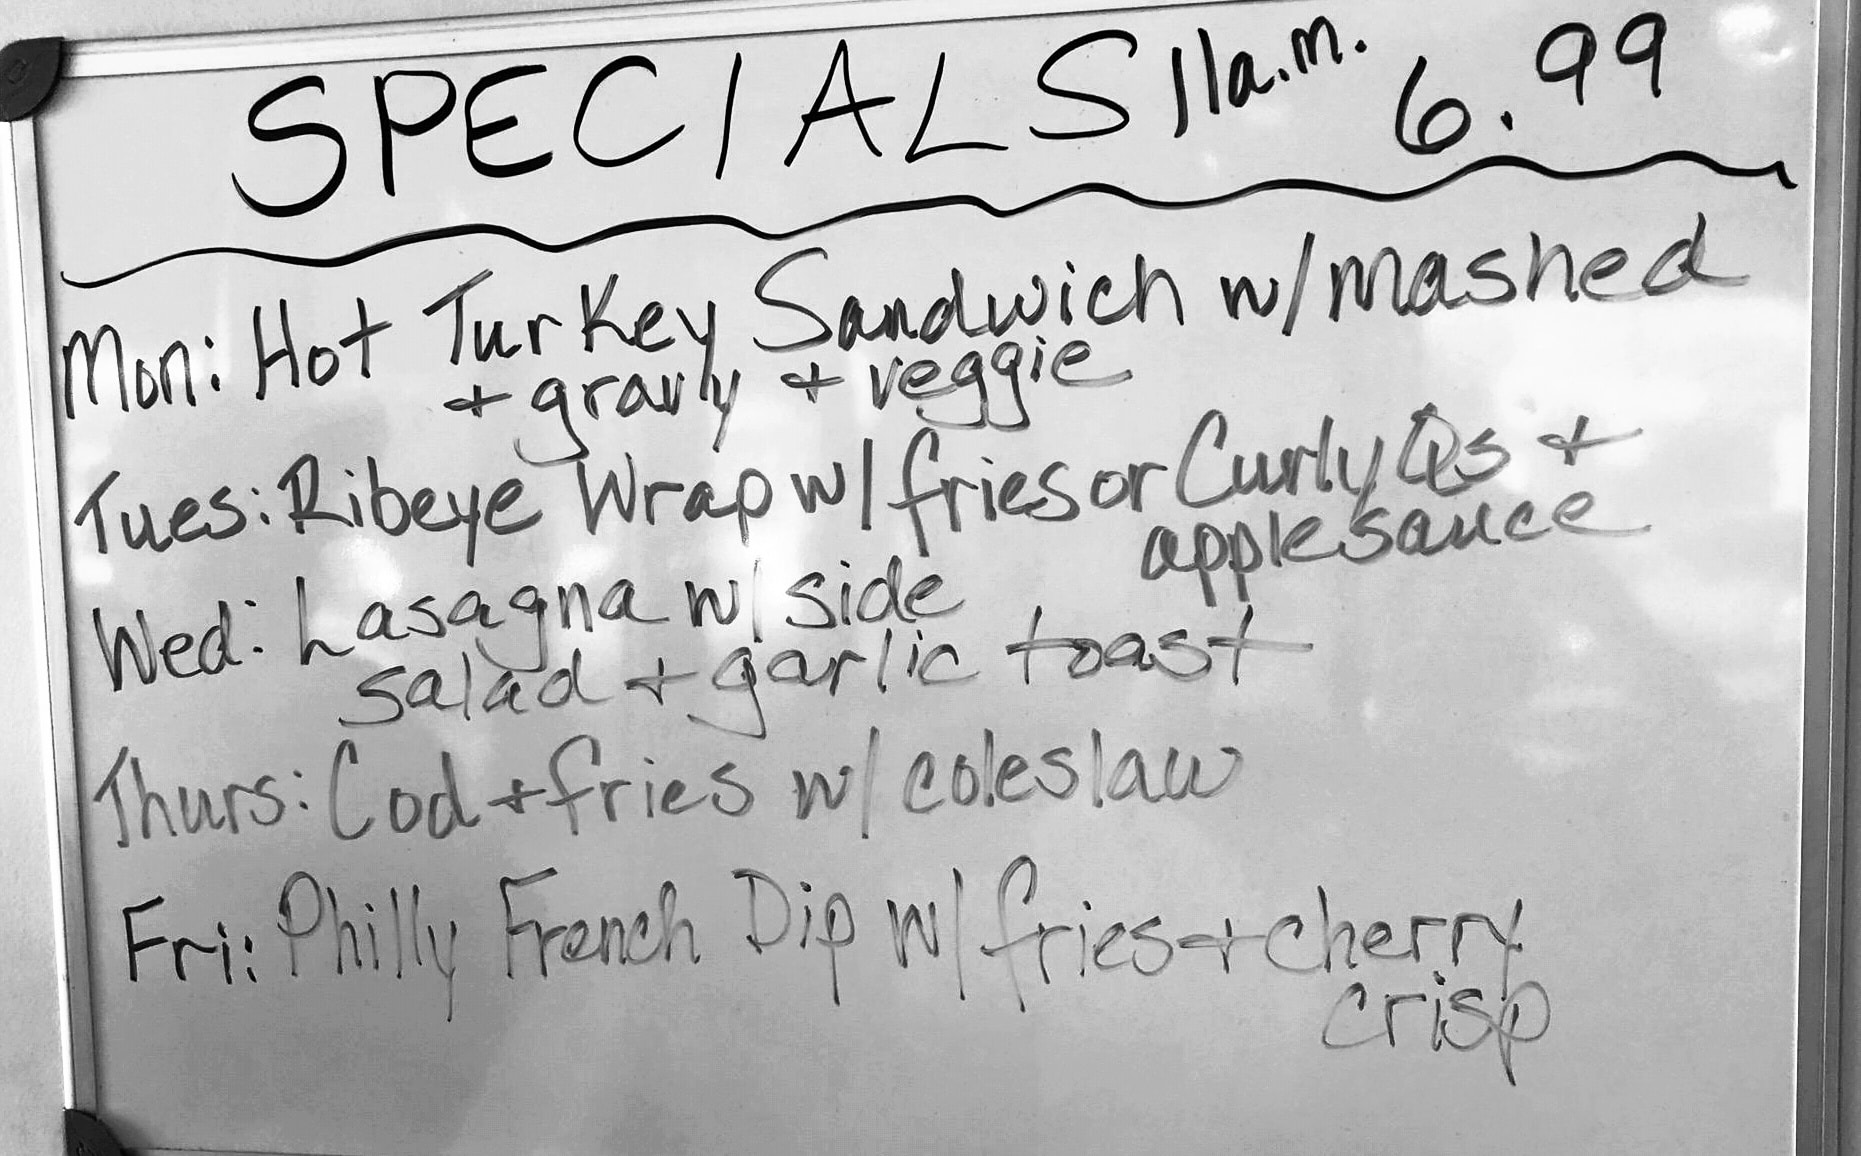 SPECIALS 11a.m. 6.99
Mon: Hot Turkey Sandwich w/mashed
+ gravy + veggie
Tues: Ribeye Wrap w/fries or Curly Qs +
applesauce
Wed: Lasagna w/ side
salad + garlic toast
Thurs: Cod + fries w/ coleslaw
Fri: Philly French Dip w/fries + cherry
crisp